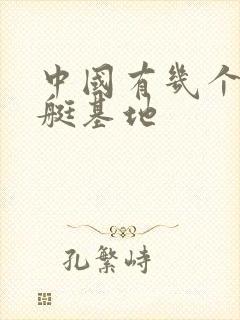 中國有幾个
艇基地
孔繁峙